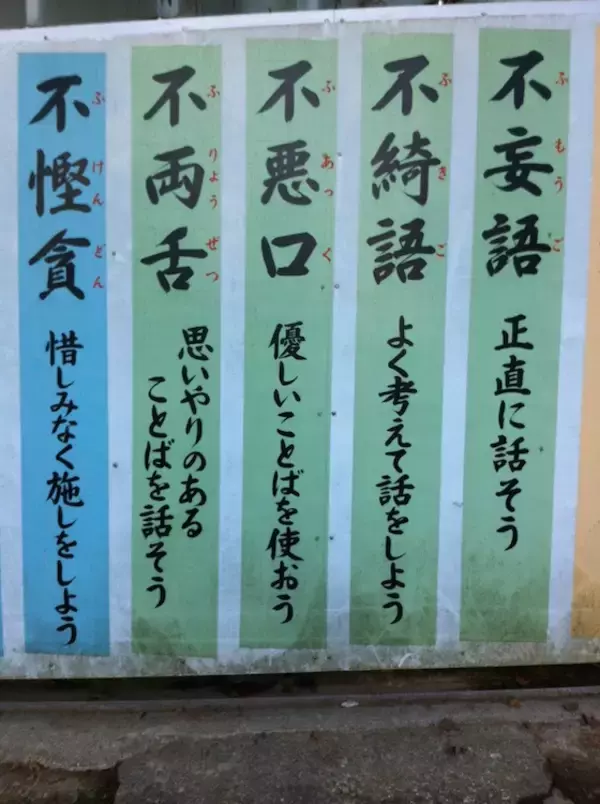 不妄語
ふもうご
正直に話そう
不綺語
ふきご
よく考えて話をしよう
不悪口
ふあっく
優しいことばを使おう
不両舌
ふりょうぜつ
思いやりのある
ことばを話そう
不慳貪
ふけんどん
惜しみなく施しをしよう